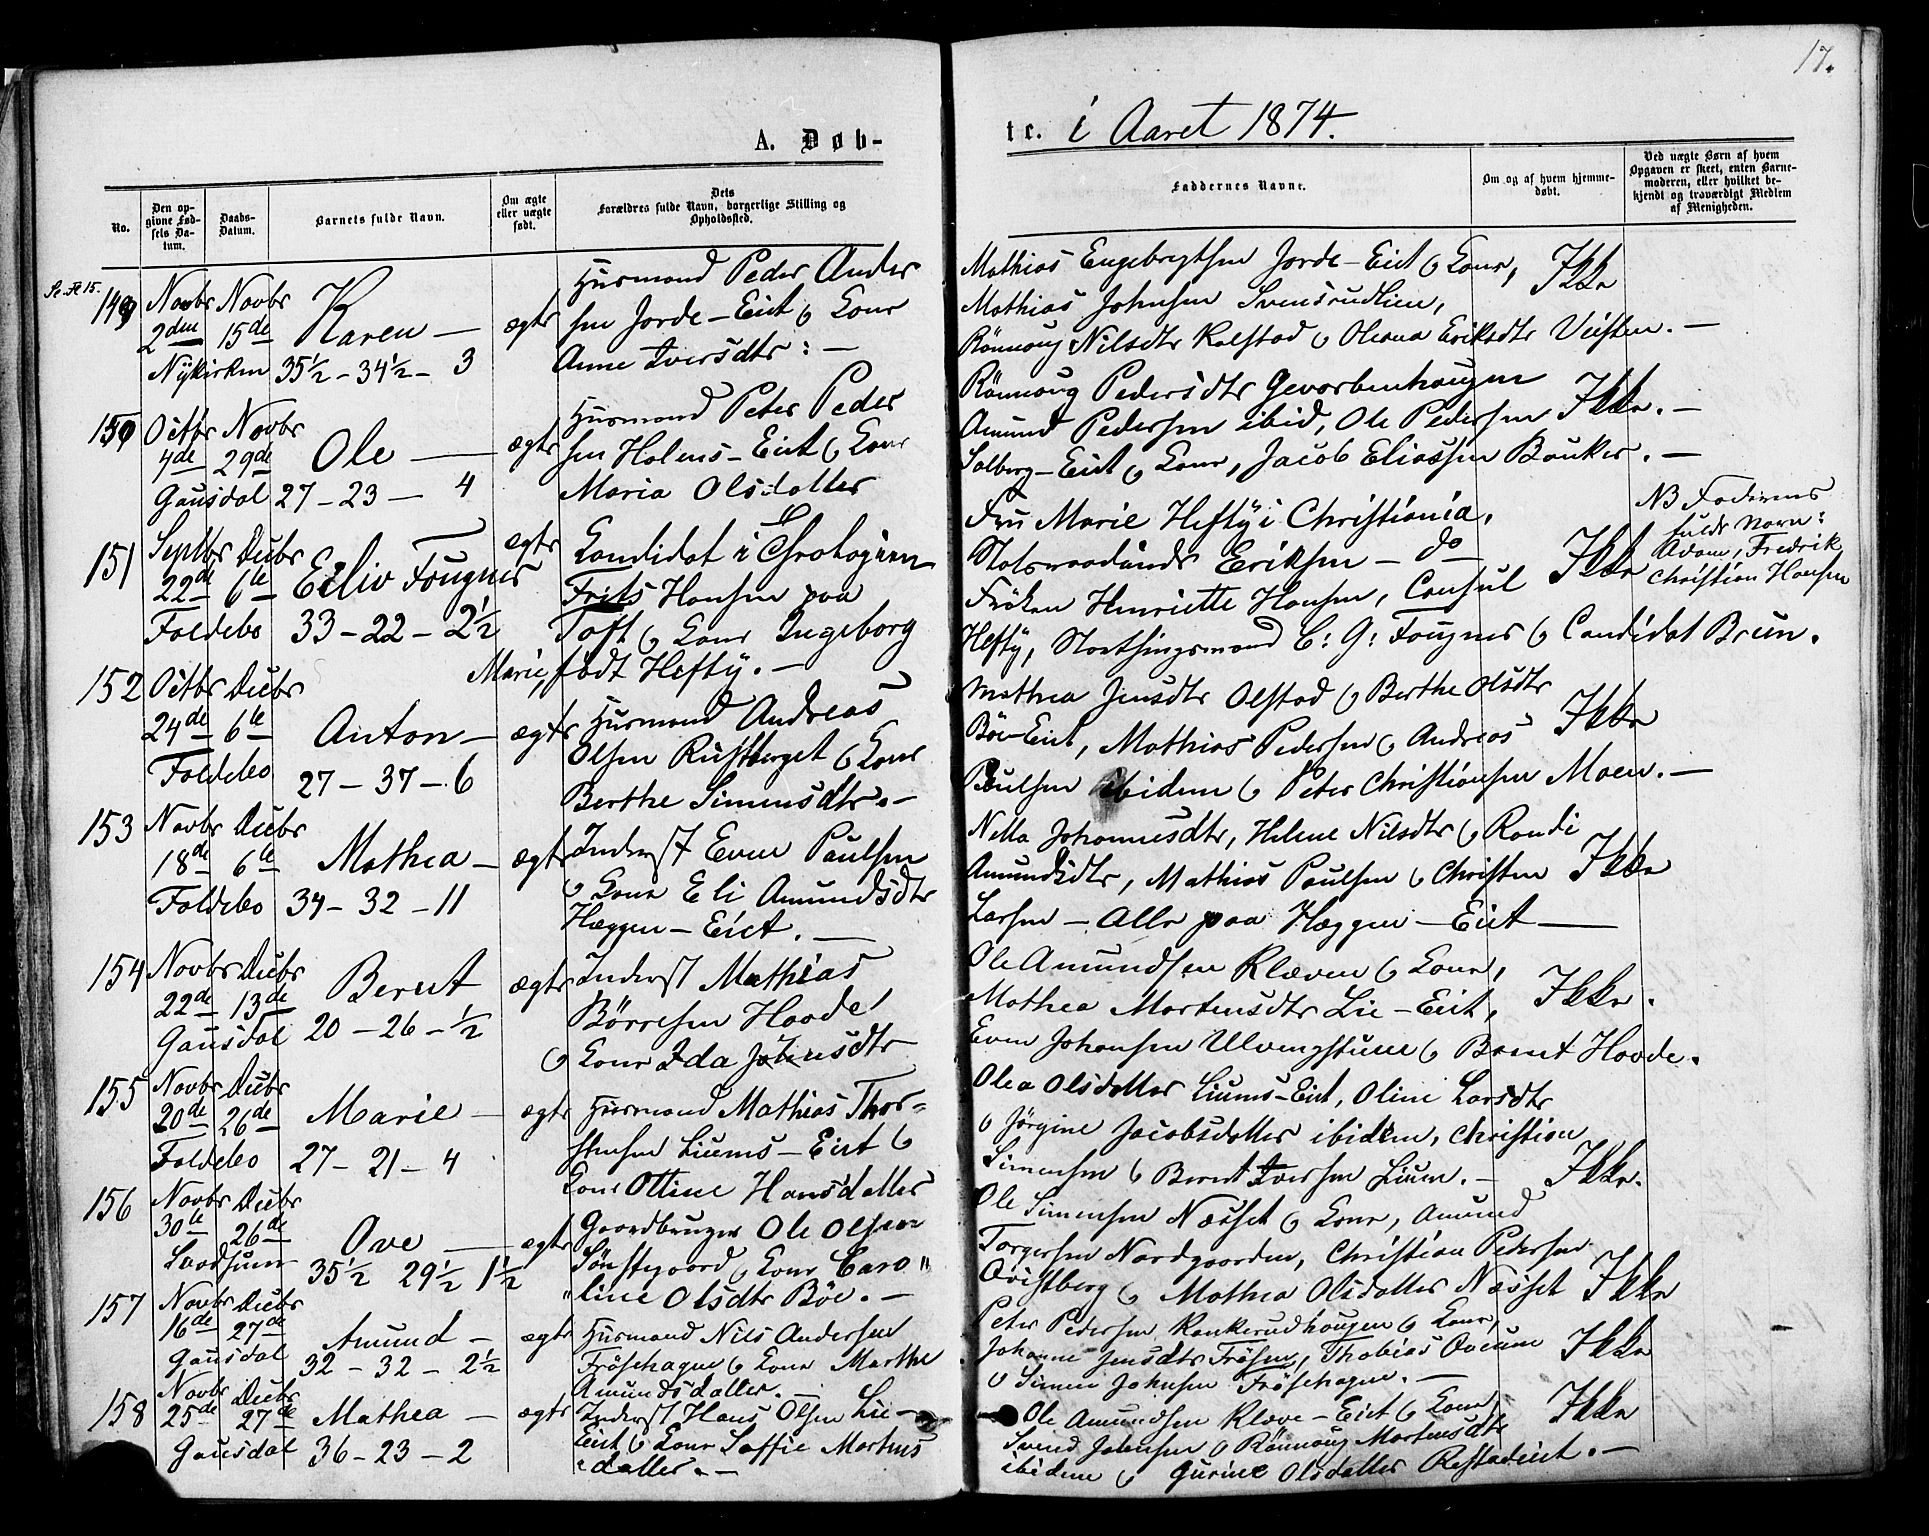 17.
A. Døb-
te. i Aaret 1874.
No.
Den op-
givne Fød-
sels Da-
tum.
Daabs-
Datum.
Barnets fulde Navn.
Om ægte
eller uægte
født.
Dets
Forældres fulde Navn, borgerlige Stilling og
Opholdssted.
Faddernes Navne.
Om og af hvem hjemme-
døbt.
Ved uægte Børn af hvem
Opgaven er skeet, enten Barne-
moderen, eller hvilket be-
kjendt og troværdigt Medlem
af Menigheden.
149
Novbr Novbr
2den 15de
Nykirken
Karen —
35½ – 34½ – 3
ægte
Husmand Peder Ander
sen Jorde – Eiet & Kone
Anne Iversdtr : —
Mathias Engebregtsen Jorde – Eiet & Kone,
Mathias Johnsen Svensrudlien,
Rönnoug Nilsdtr Kalstad & Oleana Eriksdtr Veisten. —
Ikke
150
Octbr Novbr
4de 29de
Gausdal
Ole —
27 – 23 — 4
ægte
Husmand Peter Peder
sen Holens – Eiet & Kone
Maria Olsdatter
Rönnoug Pedersdtr Gevorbenhaugen
Amund Pedersen ibid, Ole Pedersen
Solberg – Eiet & Kone, Jacob Eliassen Bauker. —
Ikke. —
151
Septbr Decbr
22de 6te
Foldebo
Eiliv Fougner
33 – 22 – 2½
ægte
Kandidat i Theologien
Frits Hansen paa
Toft & Kone Ingeborg
Marie, født Hefty. —
Fru Marie Hefty i Christiania,
Statsraadinde Eriksen — do
Fröken Henriette Hansen, Consul
Hefty, Storthingsmand C: G: Fougner & Candidat Brun.
Ikke
NB Faderens
fulde Navn:
Adam, Fredrik
Christian Hansen
152
Octbr Decbr
24de 6te
Foldebo
Anton —
27 — 37 – 6
ægte
Husmand Andreas
Olsen Rustberget & Kone
Berthe Simensdtr. —
Mathea Jensdtr Olstad & Berthe Olsdtr
Böe-Eiet, Mathias Pedersen & Andreas
Paulsen ibidem & Peter Christiansen Moen. —
Ikke
153
Novbr Decbr
18de 6te
Foldebo
Mathea —
34 – 32 – 11
ægte
Inderst Even Paulsen
& Kone Eli Amundsdtr
Hæggen – Eiet. —
Netta Johannesdtr, Helene Nilsdtr & Randi
Amundsdtr, Mathias Paulsen & Christen
Larsen — Alle paa Hæggen – Eiet —
Ikke
154
Novbr Decbr
22de 13de
Gausdal
Bernt
20 – 26 – ½
ægte
Inderst Mathias
Börresen Hovde
& Kone Ida Johnsdtr
Ole Amundsen Klæven & Kone,
Mathea Mortensdtr Lie – Eiet,
Even Johansen Ulvengstuen & Bernt Hovde.
Ikke.
155
Novbr Decbr
20de 26de
Foldebo
Marie —
27 – 21 – 4
ægte
Husmand Mathias Thor-
stensen Liums – Eiet &
Kone Ottine Hansdatter
Olea Olsdatter Liums-Eiet, Oline Larsdtr
& Jörgine Jacobsdatter ibidem, Christian
Simensen & Bernt Iversen Lium. —
Ikke.
156
Novbr Decbr
30te 26de
Ove —
35½ 29½ 1½
ægte
Gaardbruger Ole Olsen
Sönstegaard & Kone Caro"
"line Olsdtr Böe. —
Ole Simensen Næsset & Kone, Amund
Torgersen Nordgaarden, Christian Pedersen
Qvistberg & Mathea Olsdatter Næsset
Ikke
157
Novbr Decbr
16de 27de
Gausdal
Amund —
32 – 32 – 2½
ægte
Husmand Nils Andersen
Frösehagen & Kone Marthe
Amundsdatter. —
Peter Pedersen Kankerudhaugen & Kone,
Johanne Jensdtr Frösen, Thobias
& Simen Johnsen Frösehagen. —
Ikke
158
Novbr Decbr
25de 27de
Gausdal
Mathea —
36 – 23 – 2
ægte
Inderst Hans Olsen Lie –
Eiet & Kone Soffie Mortens
datter. —
Ole Amundsen Klæve – Eiet & Kone,
Svend Johnsen & Rönnoug Mortensdtr
ibidem & Gurine Olsdatter Restadeiet. —
Ikke